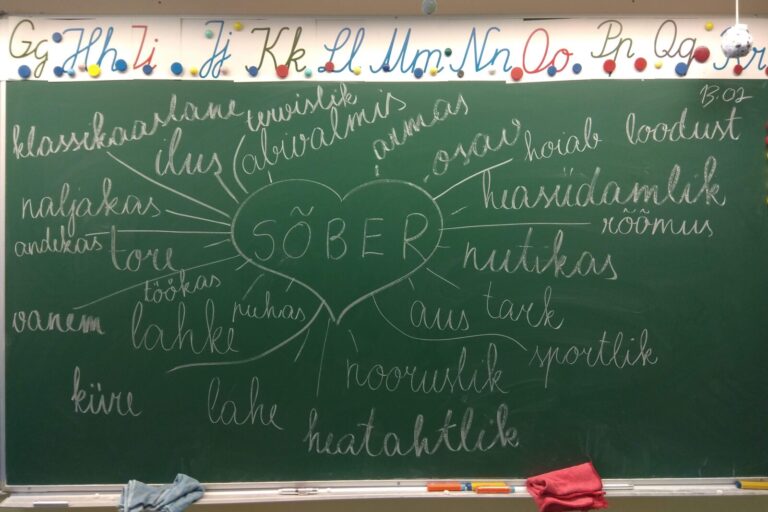 Gg Hh Ii Jj Kk Ll Mm Nn Oo Pp Qq Rr
13.02
klassikaaslane
tervislik
ilus
abivalmis
armas
osav
hoiab loodust
naljakas
heasüdamlik
andekas
tore
SÕBER
rõõmus
nutikas
töökas
vanem
lahke
puhas
aus
tark
sportlik
nooruslik
kiire
lahe
heatahtlik